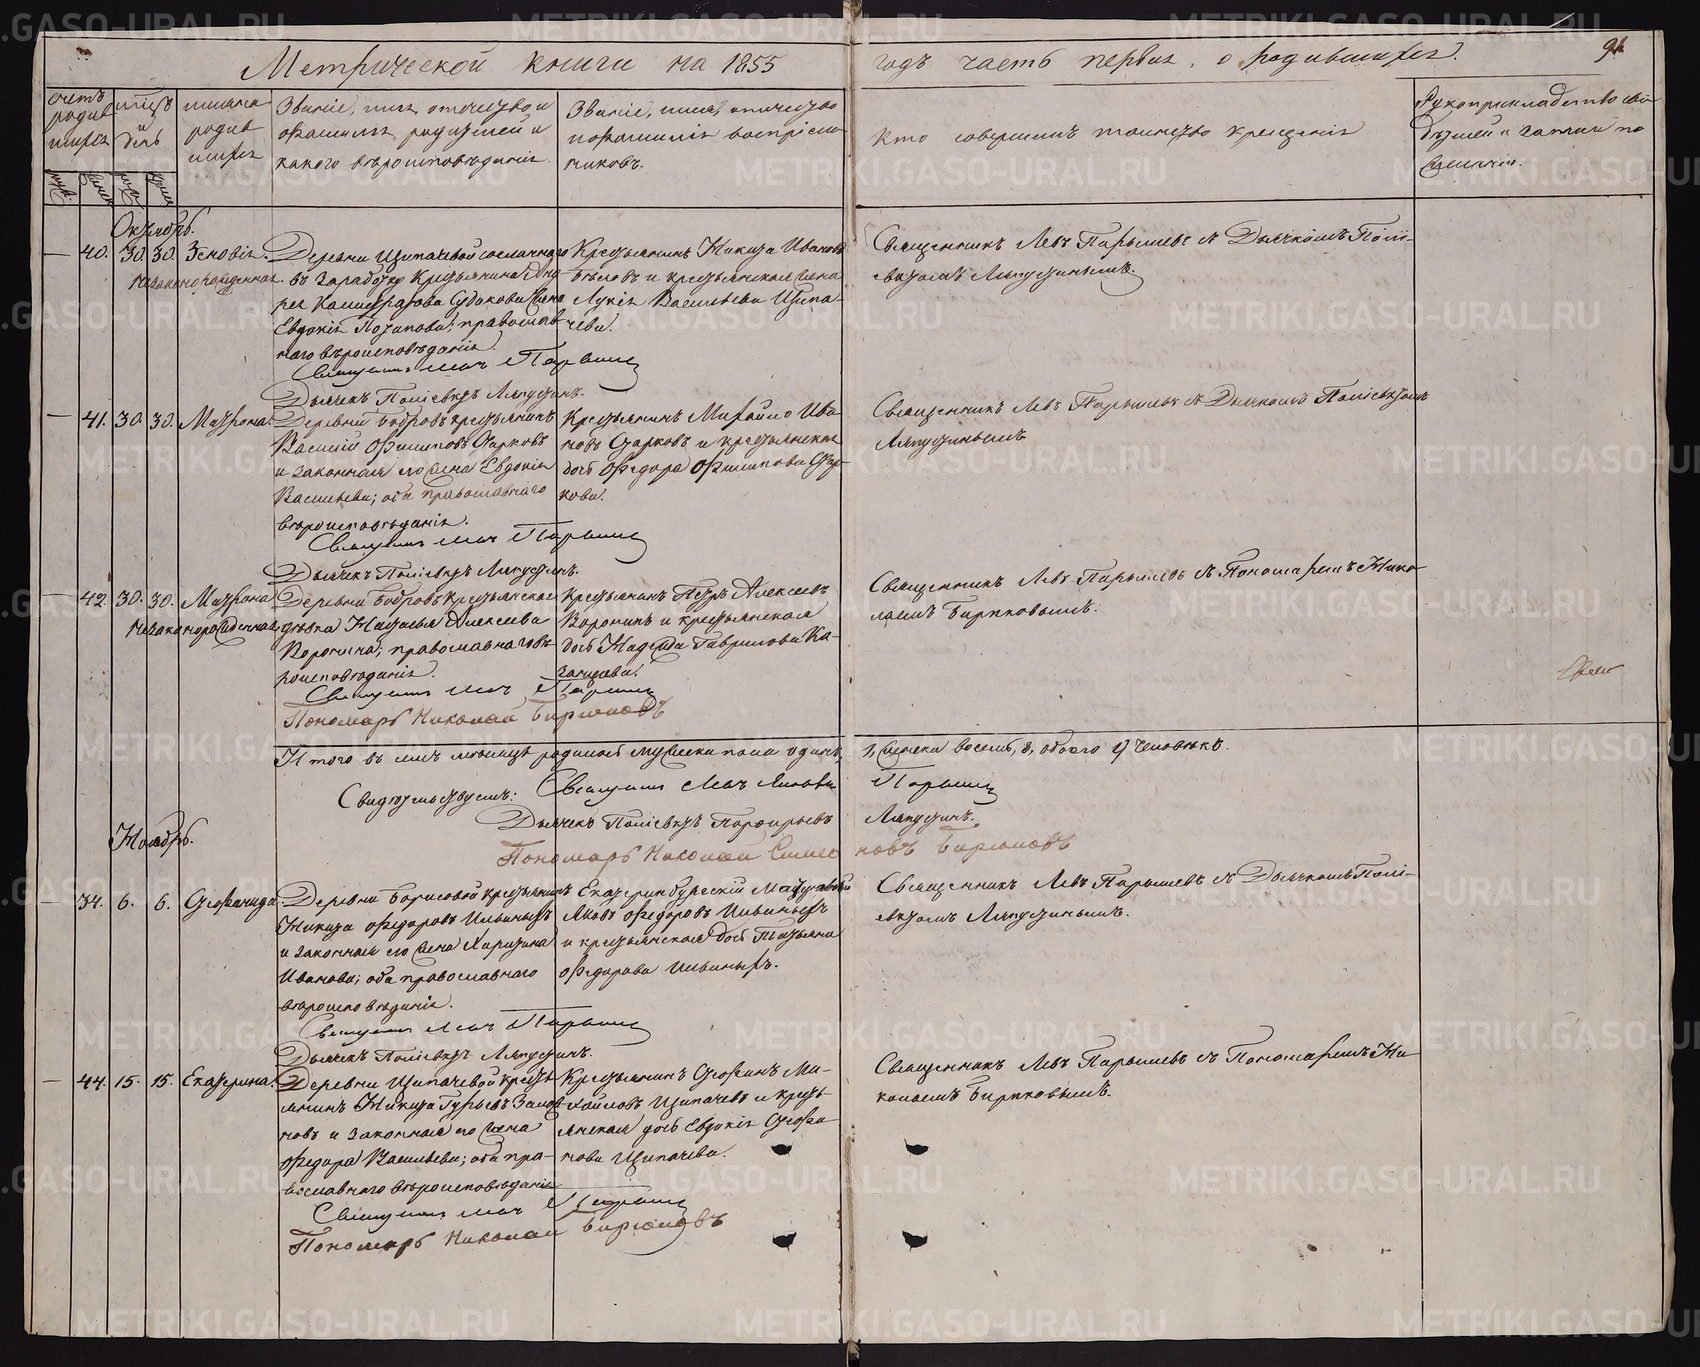 Метрической книги на 1855 годъ часть первая, о родившихся.
91
Счетъ родившихся
мѣсяцъ и день
имена родившихся
Званіе, имя, отчество и фамилія родителей и какого вѣроисповѣданія.
Званіе, имя, отчество и фамилія воспріемниковъ.
Кто совершилъ таинство крещенія
Рукоприкладство свидѣтелей о записи по желанію.
Октябрь.
40. 30. 30. Зеновія.
незаконорожденная.
Деревни Щипачевой
въ Заработку Крестьянина
Евдокія Потапова; православнаго вѣроисповѣданія.
Крестьянинъ Никита Ивановъ
Бѣловъ и крестьянская жена
Лукія Васильева Щипачева.
Священникъ Левъ Парышевъ съ Дьячкомъ Поліевктомъ Ляпустинымъ.
Священникъ Левъ Парышевъ
Дьячекъ Поліевктъ Ляпустинъ.
41. 30. 30. Матрона.
Деревни Бобровъ крестьянинъ
Василій Филиповъ Старковъ
и законная его жена Евдокія
Васильева; оба православнаго
вѣроисповѣданія.
Крестьянинъ Михайло Ивановъ Старковъ и крестьянская
дочь Федора Филипова Старкова.
Священникъ Левъ Парышевъ съ Дьячкомъ Поліевктомъ
Ляпустинымъ
Священникъ Левъ Парышевъ
Дьячекъ Поліевктъ Ляпустинъ.
42. 30. 30. Матрона
незаконорожденная
Деревни Бобровъ крестьянская
дѣвка Наталья Алексеева
Воронина; православнаго вѣроисповѣданія.
Крестьянинъ Петръ Алексеевъ
Воронинъ и крестьянская
дочь Надежда Гаврилова
Священникъ Левъ Парышевъ съ Пономаремъ Николаемъ Бирюковымъ.
Священникъ Левъ Парышевъ
Пономарь Николай Бирюковъ
Итого въ семъ мѣсяцѣ родилось мужеска пола одинъ, 1, женска восемь, 8, обоего 9 человѣкъ.
Свидѣтельствуемъ: Священникъ Левъ Яковлевъ Парышевъ
Дьячекъ Поліевктъ Порфирьевъ Ляпустинъ.
Пономарь Николай Симеоновъ Бирюковъ
Ноябрь.
34. 6. 6. Стефанида.
Деревни Борисовой крестьянинъ
Никита Федоровъ Ильиныхъ
и законная его жена Харитина
Иванова; оба православнаго
вѣроисповѣданія.
Екатеринбургскій
Яковъ Федоровъ Ильиныхъ
и крестьянская дочь Татьяна
Федорова Ильиныхъ.
Священникъ Левъ Парышевъ съ Дьячкомъ Поліевктомъ Ляпустинымъ.
Священникъ Левъ Парышевъ
Дьячекъ Поліевктъ Ляпустинъ.
44. 15. 15. Екатерина.
Деревни Щипачевой крестьянинъ Никита Гурьевъ
и законная его жена
Федора Васильева; оба православнаго вѣроисповѣданія
Крестьянинъ Стефанъ Михайловъ Щипачевъ и крестьянская дочь Евдокія Стефанова Щипачева.
Священникъ Левъ Парышевъ съ Пономаремъ Николаемъ Бирюковымъ.
Священникъ Левъ Парышевъ
Пономарь Николай Бирюковъ
METRIKI.GASO-URAL.RU